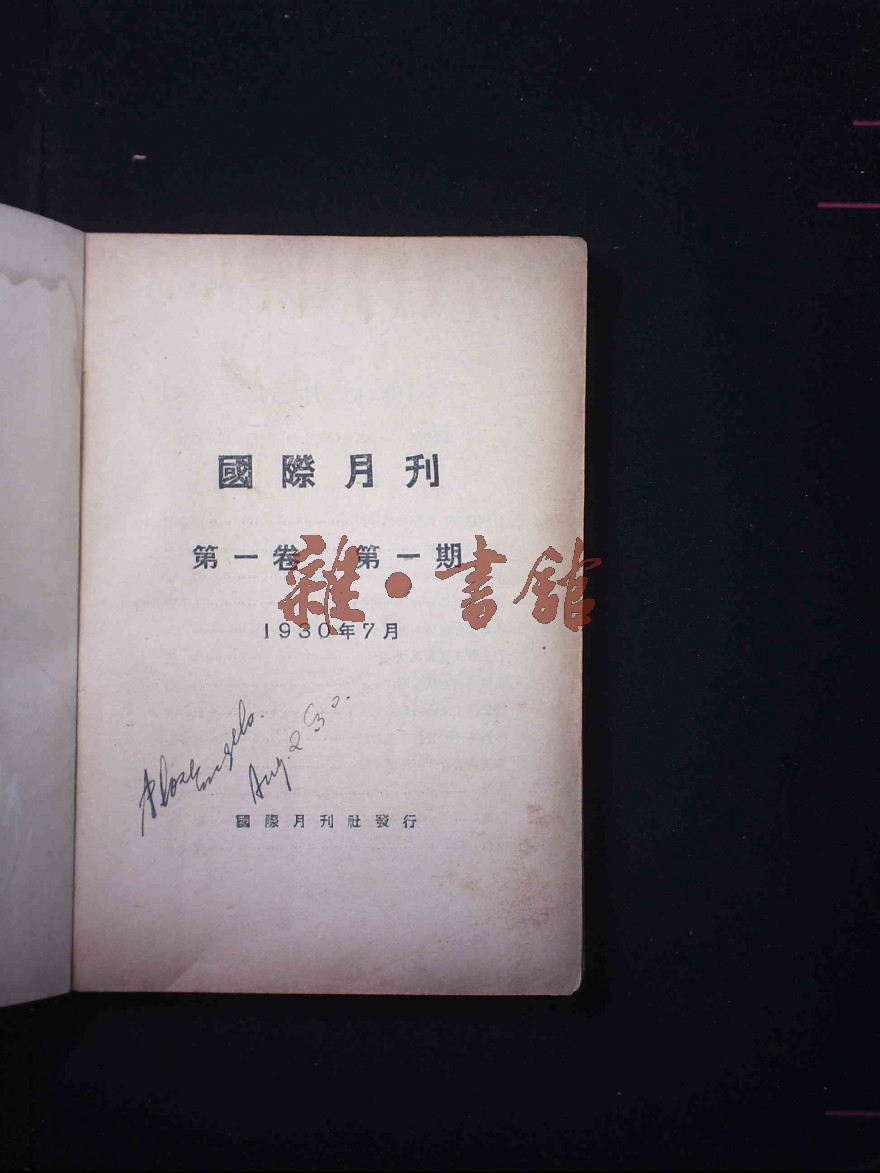 國際月刊
第一卷 第一期
雜·書館
1930年7月
Aug. 2 30.
國際月刊社發行